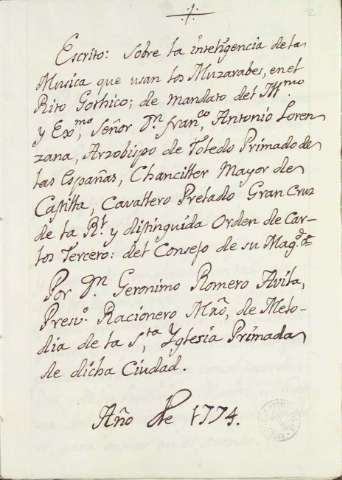 Escrito: Sobre la inteligencia de la
Musica que usan los Muzarabes, en el
Rito Gothico; de mandato del Yll.mo
y Ex.mo, Señor D.n Fran.co Antonio Loren-
zana, Arzobispo de Toledo Primado de
las Españas, Chanciller Mayor de
Castilla, Cavallero Prelado Gran Cruz
de la R.l y distinguida Orden de Car-
los Tercero: del Consejo de su Mag.d &
Por D.n Geronimo Romero Avila,
Presv.o Racionero Mro, de Melo-
dia de la S.ta Yglesia Primada
de dicha Ciudad.
Año de 1774.